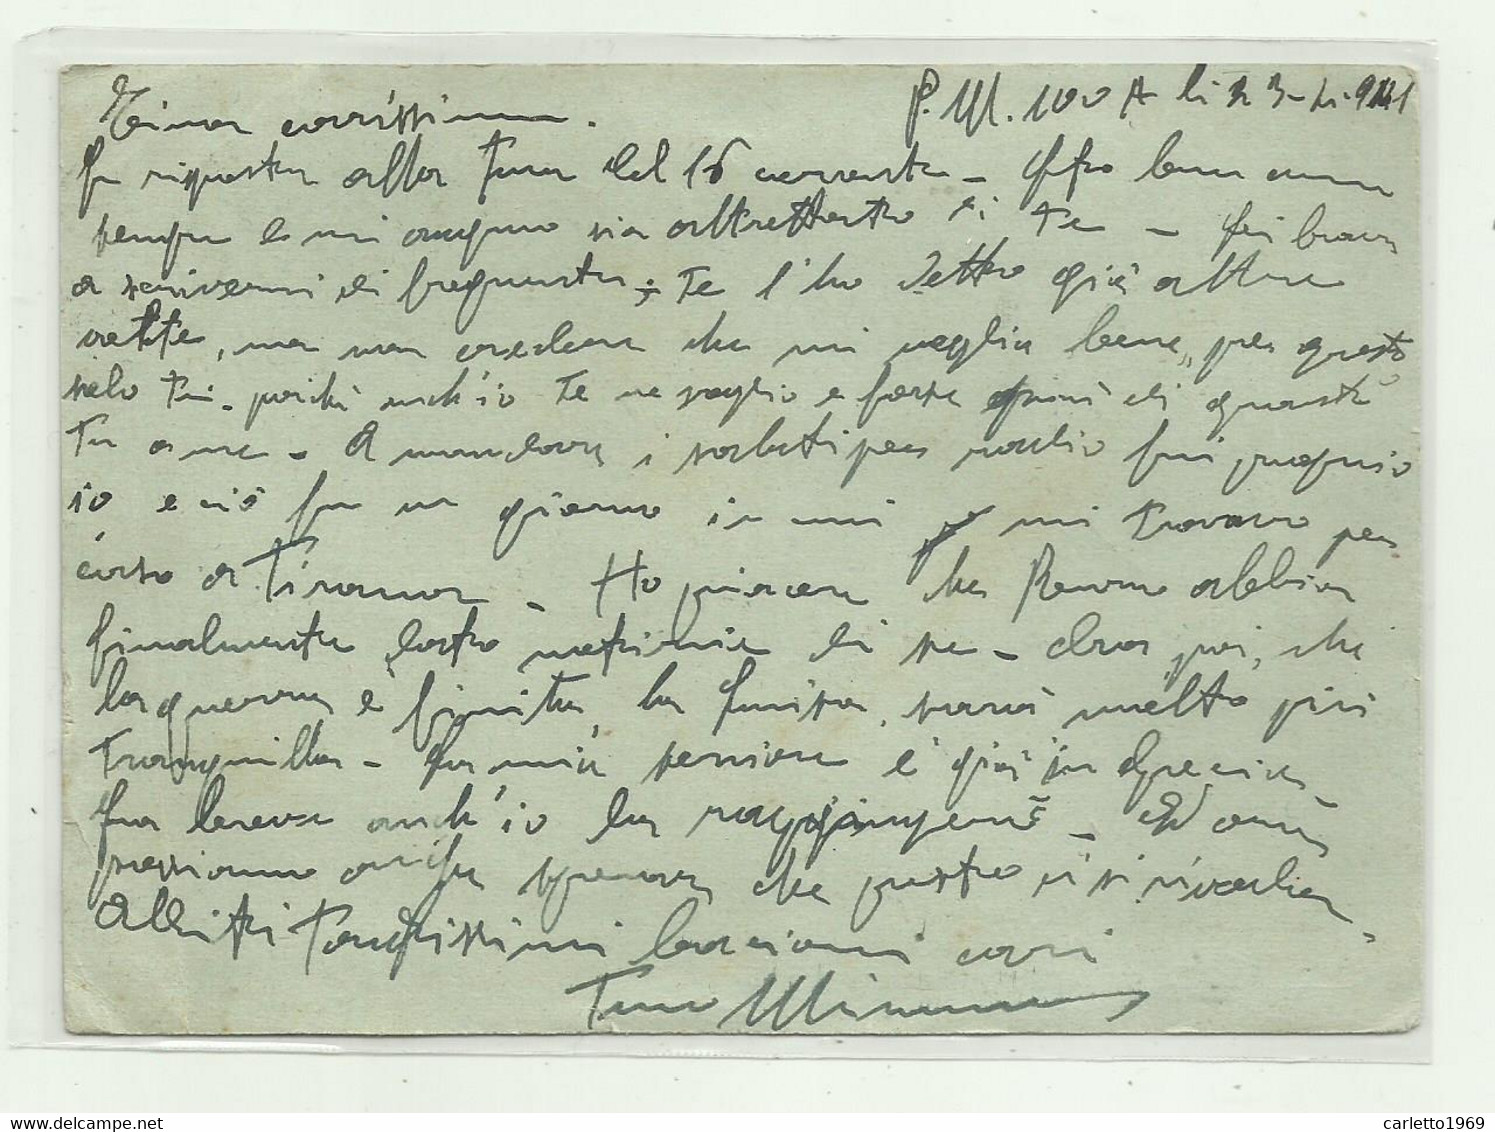 P. M. 100 A li 23-4-941
carissima.
In risposta alla Tua del 16 corrente - Sto bene come
sempre e mi auguro sia altrettanto di Te - Sei brava
a scrivermi di frequente; Te l'ho detto già altre
volte, ma non credere che mi voglia bene, per questo
solo Tu - poiché anch'io Te ne voglio e forse più di quanto
Tu a me - A mandare i saluti per radio fui proprio
io e ciò fu un giorno in cui mi trovavo per
corso a Tirana - Ho piacere che abbia
finalmente dato notizie di se - Ora poi, che
la guerra è finita, la sarà molto più
tranquilla - La mia sezione è già in Grecia -
fra breve anch'io la raggiungerò - Ed ora
possiamo anche sperare che presto ci si riveda -
Abbiti Tantissimi bacioni cari
Tuo Mimmo
carletto1969